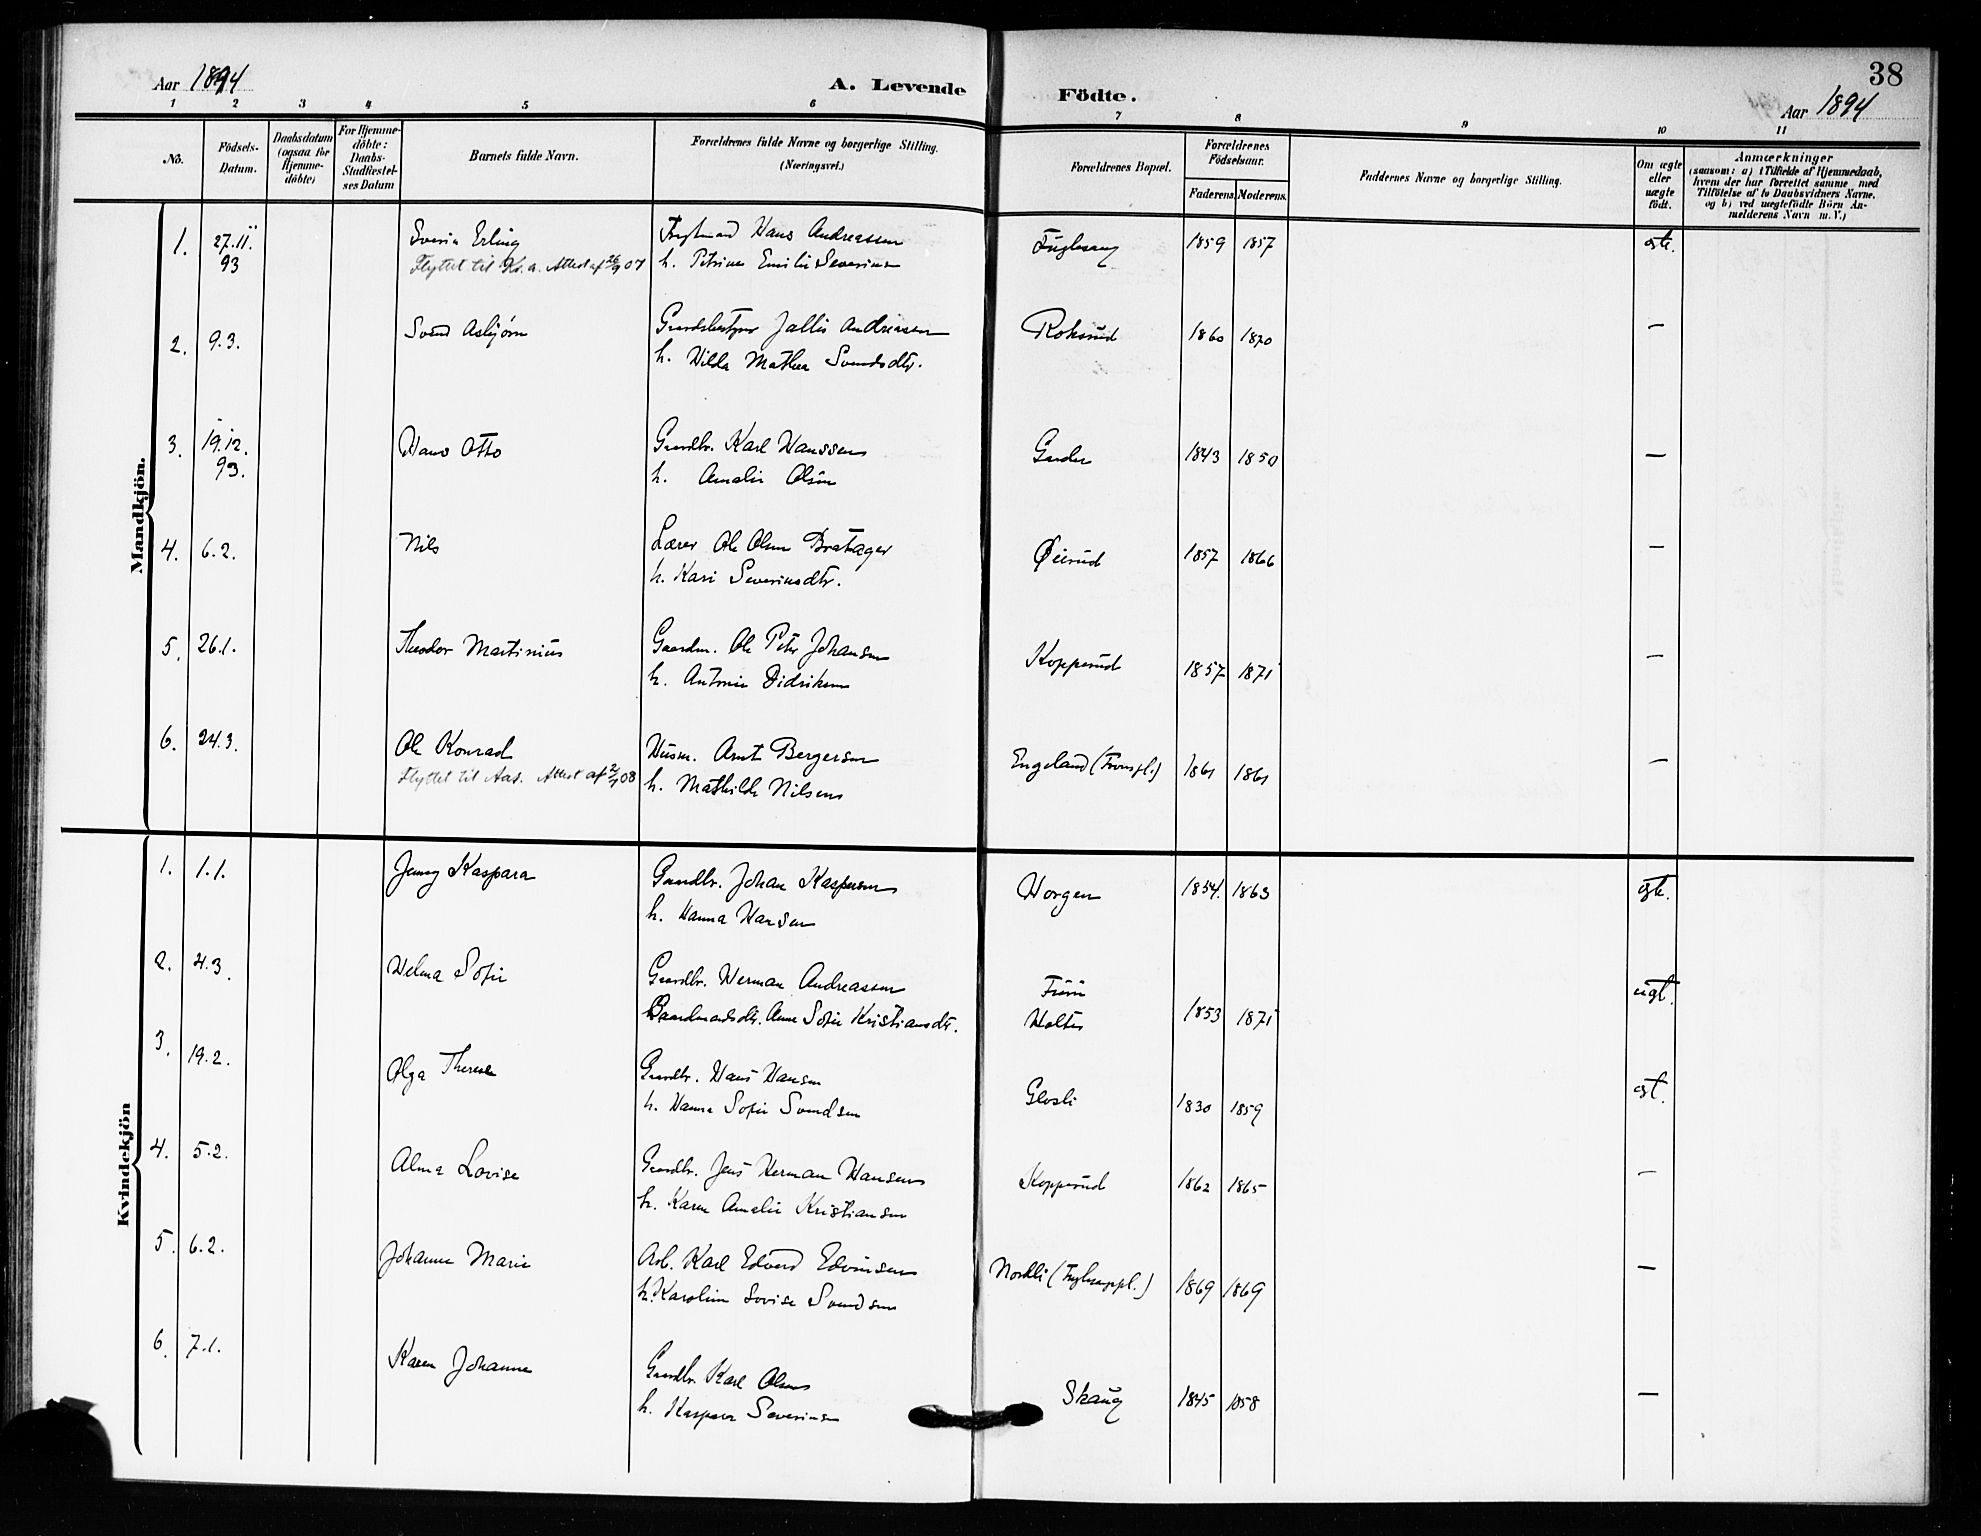 38
Aar 1894
A. Levende
Födte.
Aar 1894
1 2 3 4 5 6 7 8 9 10 11
No.
Födsels-
Datum.
Daabsdatum
(ogsaa for
Hjemme-
döbte)
For Hjemme-
döbte:
Daabs-
Stadfæstel-
ses Datum
Barnets fulde Navn.
Forældrenes fulde Navne og borgerlige Stilling.
(Næringsvei.)
Forældrenes Bopæl.
Forældrenes
Födselsaar.
Faderens. Moderens.
Faddernes Navne og borgerlige Stilling.
Om ægte
eller
uægte
födt.
Anmærkninger
(saasom: a) i Tilfælde af Hjemmedaab,
hvem der har forrettet samme med
Tilföielse af to Daabsvidners Navne,
og b) ved uægtefödte Börn An-
melderens Navn m. V.)
Mandkjön.
1. 27.11. Sverin Erling Hans Andreassen Fuglesang 1859 1857 egte.
93 Flyttet til Kr.a. Attest af 26/9 07 h. Petrine Emilie Severinsen
2. 9.3. Svend Asbjørn Julius Andreasen Roksrud 1860 1870 —
h. Hilda Mathea Svendsdtr.
3. 19.12. Hans Otto Gaardbr. Karl Hanssen Garder 1843 1850 —
93. h. Amalie Olsen
4. 6.2. Nils Lærer Ole Olsen Bratager Øierud 1857 1866 —
h. Kari Severinsdtr.
5. 26.1. Theodor Martinius Gaardm. Ole Peter Johansen Kopperud 1857 1871 —
h. Antonie Didriksen
6. 24.3. Ole Konrad Husm. Arnt Bergersen Engeland 1861 1861 —
Flyttet til Aas. Attest af 08 h. Mathilde Nilsen
Kvindekjön
1. 1.1. Jenny Kaspara Gaardbr. Johan Kaspersen Horgen 1854. 1863 egte.
h. Hanna Hansen
2. 4.3. Helma Sofie Gaardbr. Herman Andreassen uegt.
Gaardmandsdtr. Anne Sofie Kristiansdtr. Holter 1853 1871
3. 19.2. Olga Therese Gaardbr. Hans Hansen Glosli 1830 1859 egt.
h. Hanna Sofie Svendsen
4. 5.2. Alma Lovise Gaardbr. Jens Herman Hansen Kopperud 1862 1865 —
h. Karen Amalie Kristiansen
5. 6.2. Johanne Marie Arb. Karl Edvard Edvinsen Nordli 1869 1869 —
h. Karoline Lovise Svendsen
6. 7.1. Karen Johanne Gaardbr. Karl Olsen Skaug 1845 1858 —
h. Kaspara Severinsen